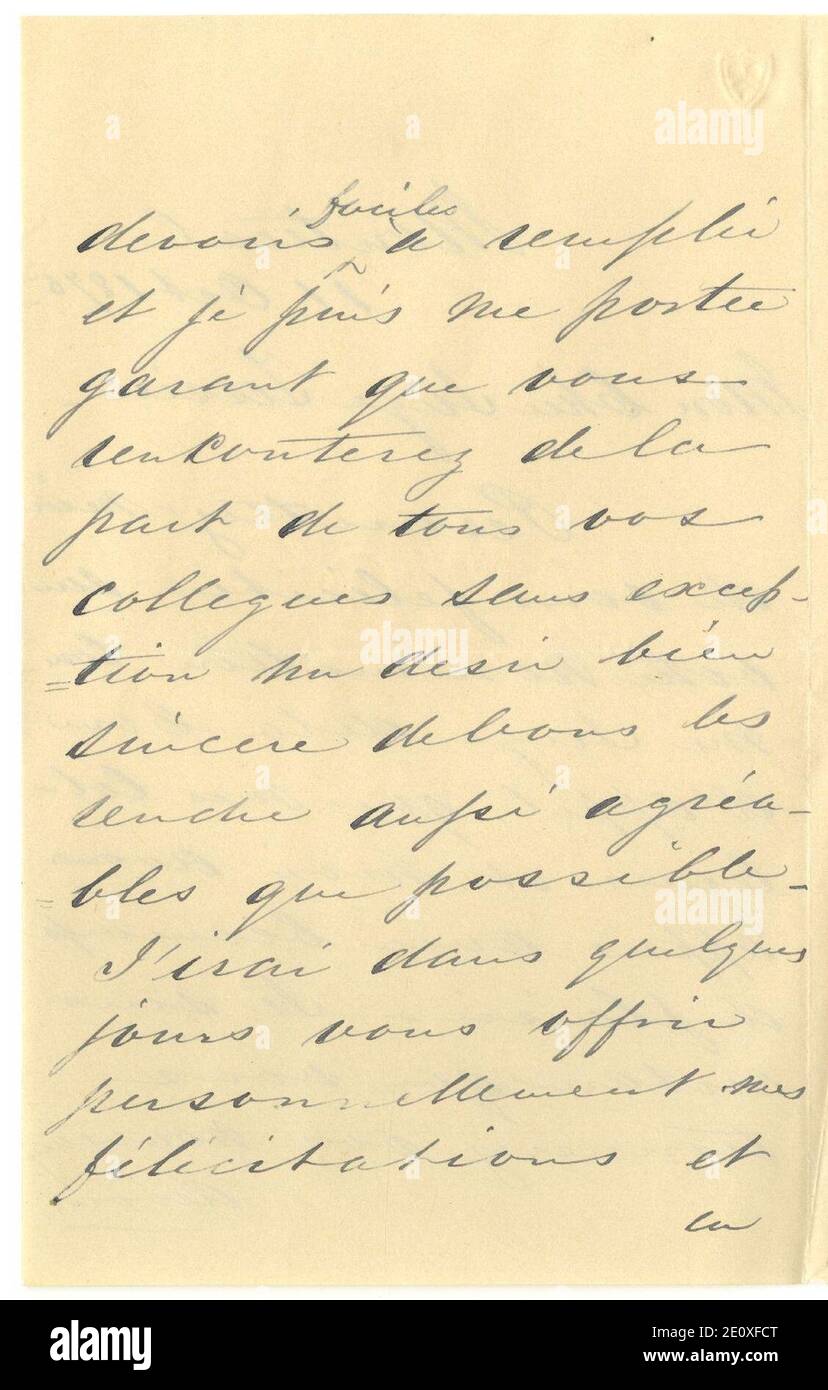 faciles
devoirs à remplir
et je puis me porter
garant que vous
renconterez de la
part de tous vos
collegues sans excep-
=tion un desir bien
sincere de vous les
rendre aussi agréa-
=bles que possible-
J'irai dans quelques
jours vous offrir
personnellement mes
félicitations et
en
alamy
Image ID: 2E0XFCT
www.alamy.com